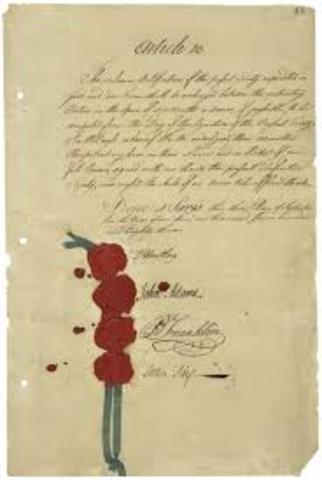 Article 10
The solemn Ratifications of the present Treaty expedited in
good and due Form shall be exchanged between the contracting
Parties in the Space of Six Months or sooner if possible to be
computed from the Day of the Signature of the present Treaty
In Witness whereof we the undersigned their Ministers
Plenipotentiary have in their Name and in Virtue of our
Full Powers signed with our Hands the present Definitive
Treaty, and caught the Seals of our Arms to be affix'd thereto.
Done at Paris this third Day of September
In the Year of our Lord one thousand seven hundred
and Eighty three
D Hartley
John Adams.
B Franklin
John Jay